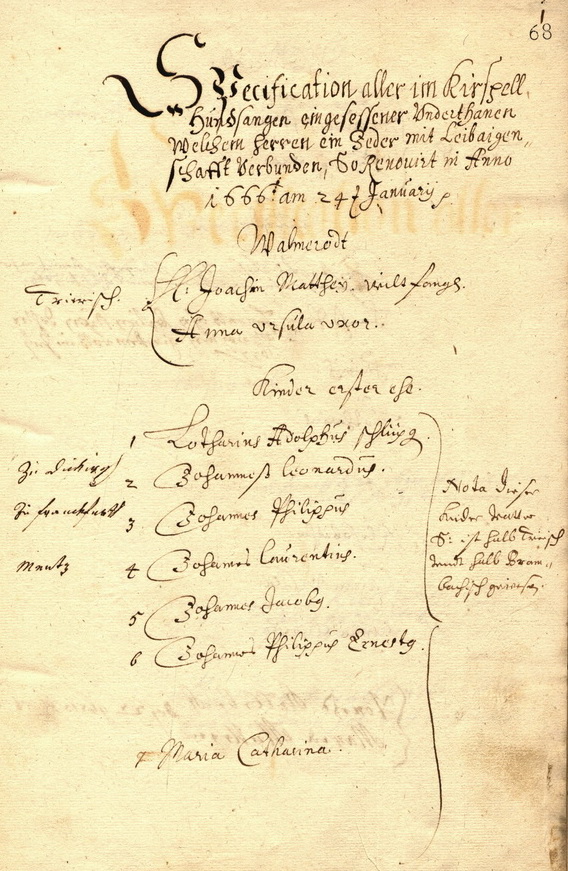 68
Specification aller im Kirspell
Hundsangen eingesessener Underthanen
Welchem herren ein Jeder mit Leibaigen„
schafft Verbunden, So Renovirt in Anno
1666 am 24 January
Walmerodt
Trierisch. H: Joachim Matthey. wiltfangh.
Anna Ursula uxor.
Kinder erster ehe.
1 Lotharius Adolphus
Zu 2 Johannes Leonardus.
Zu franckfurth 3 Johannes Philippus
Mentz 4 Johannes Laurentius.
5 Johannes Jacobg.
6 Johannes Philippus Ernestg.
7 Maria Catharina
Nota diese
kinder
S: ist halb Trierisch
undt halb Bram„
bachisch gewesen.